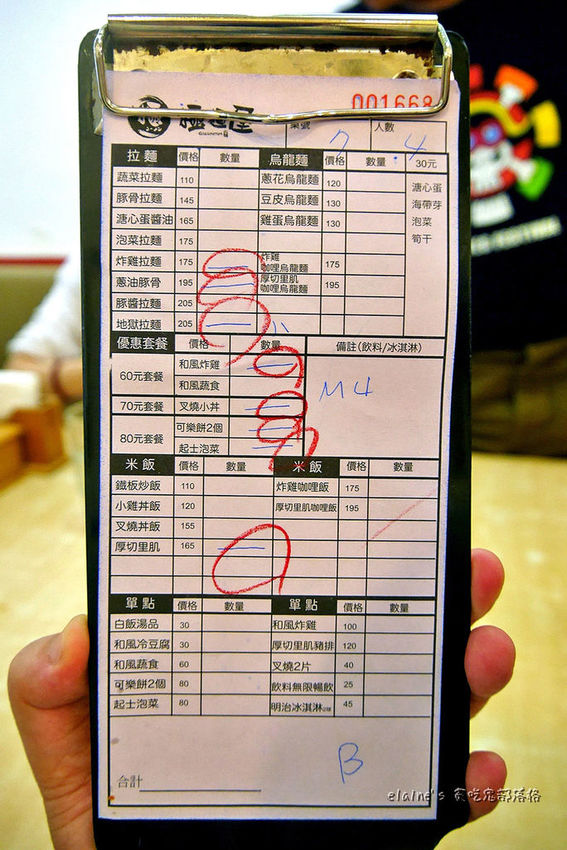 001668
極 屋
桌號 7 人數 4
拉麵 價格 數量 烏龍麵 價格 數量 30元
蔬菜拉麵 110 蔥花烏龍麵 120 溏心蛋
豚骨拉麵 145 豆皮烏龍麵 130 海帶芽
溏心蛋醬油 165 雞蛋烏龍麵 130 泡菜
泡菜拉麵 175 筍干
炸雞拉麵 175 一 炸雞咖哩烏龍麵 175
蔥油豚骨 195 一 厚切里肌咖哩烏龍麵 195
豚醬拉麵 205
地獄拉麵 205 一 小
優惠套餐 價格 數量 備註(飲料/冰淇淋)
60元套餐 和風炸雞 一
和風蔬食
M4
70元套餐 叉燒小丼 一
80元套餐 可樂餅2個 一
起士泡菜 一
米飯 價格 數量 米飯 價格 數量
鐵板炒飯 110 炸雞咖哩飯 175
小雞丼飯 120 厚切里肌咖哩飯 195
叉燒丼飯 155
厚切里肌 165 一
單點 價格 數量 單點 價格 數量
白飯湯品 30 和風炸雞 100
和風冷豆腐 30 厚切里肌豬排 120
和風蔬食 60 叉燒2片 40
可樂餅2個 80 飲料無限暢飲 25
起士泡菜 80 明治冰淇淋 45
B
合計
elaine's 貪吃鬼部落格